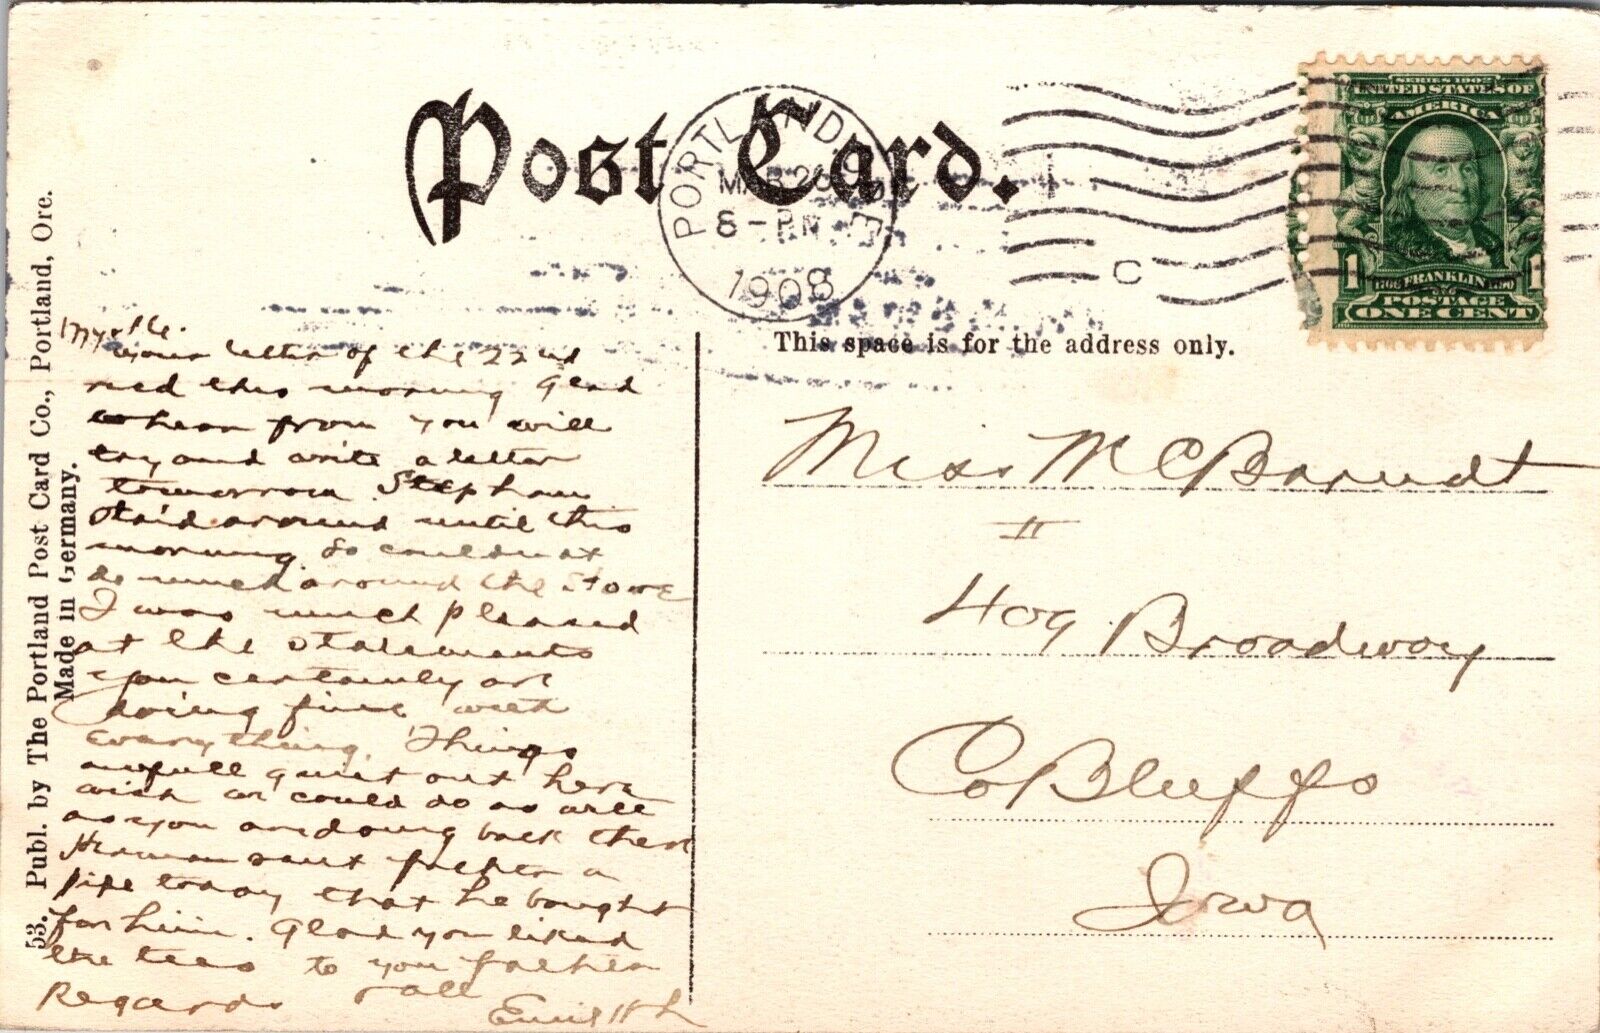 Post Card.
PORTLAND, ORE
MAR 26
8 - PM
1908
C
SERIES 1902
UNITED STATES OF
AMERICA
1 FRANKLIN 1
1706 1790
POSTAGE
ONE CENT
This space is for the address only.
53. Publ. by The Portland Post Card Co., Portland, Ore.
Made in Germany.
your letter of the 22nd
recd this morning Glad
to hear from you will
try and write a letter
tomorrow. Stephan
staid around until this
morning. So couldn't
do much around the Store
I was much pleased
at the statements
you certainly are
doing fine with
everything. Things
awfull quiet out here
wish we could do as well
as you are doing back there
Herman sent father a
pipe today that he bought
for him. Glad you liked
the tees to you father
Regards to all
Emil
Miss M C Barndt
II
409. Broadway
Co Bluffs
Iowa